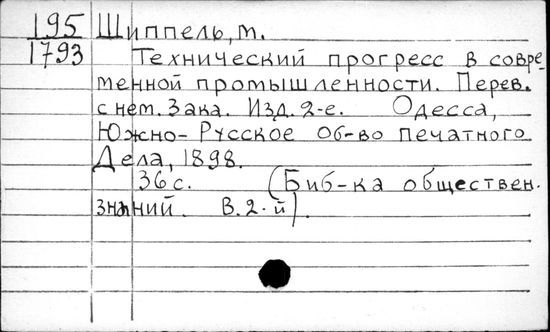 195 Шиппель, м.
1793 Технический прогресс в совре-
менной промышленности. Перев.
с нем. Зака. Изд. 2-е. Одесса,
Южно-Русское Об-во печатного
Дела, 1898.
36 с. (Биб-ка обществен.
знаний. В. 2-й).